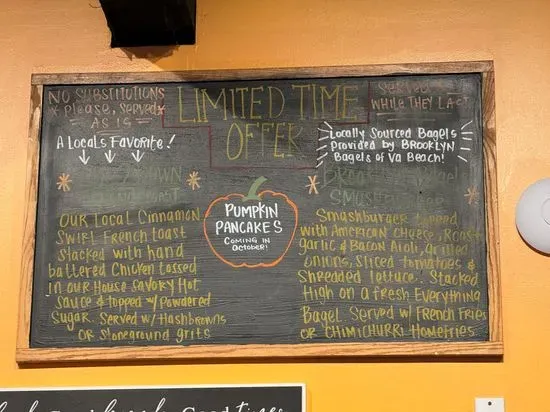 NO SUBSTITUTIONS
* Please, Served *
= AS IS =
LIMITED TIME
OFFER
SERVED
WHILE THEY LAST
A Locals Favorite!
Locally Sourced Bagels
Provided by BROOKLYN
Bagels of Va Beach!
OUR Local Cinnamon
Swirl French toast
Stacked with hand
battered Chicken tossed
in our House Savory Hot
Sauce & topped w/ Powdered
Sugar. Served w/ Hashbrowns
OR Stoneground grits
PUMPKIN
PANCAKES
COMING IN
October!
SMASH
Smashburger topped
with AMERICAN Cheese, Roast
garlic & BACON Aioli, grilled
onions, Sliced tomatoes &
Shredded lettuce. Stacked
High on a fresh Everything
Bagel. Served w/ French Fries
OR CHIMICHURRI Homefries
Good times